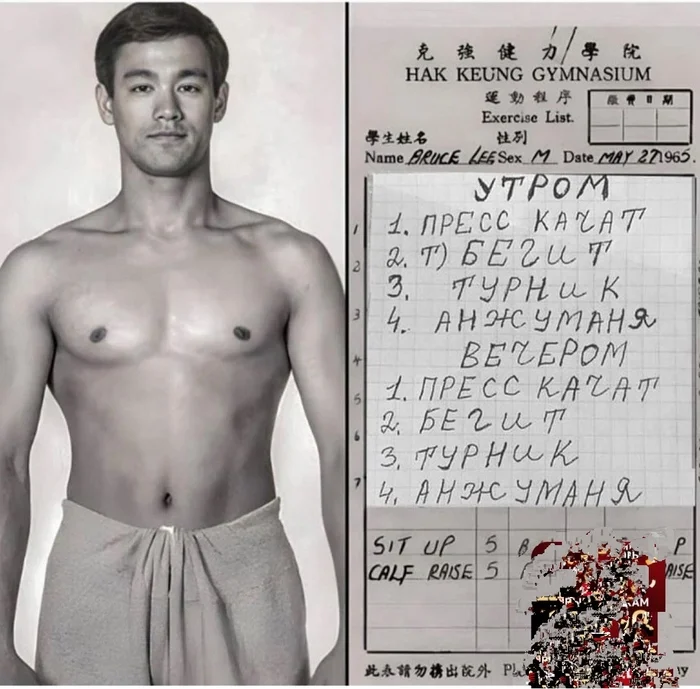 克強健力學院
HAK KEUNG GYMNASIUM
運動程序
Exercise List.
繳費日期
學生姓名 性別
Name BRUCE LEE Sex M Date MAY 27 1965.
УТРОМ
1 1. ПРЕСС КАЧАТ
2 2. Т) БЕГИТ
3 3. ТУРНИК
4. АНЖУМАНЯ
4 ВЕЧЕРОМ
5 1. ПРЕСС КАЧАТ
6 2. БЕГИТ
3. ТУРНИК
7 4. АНЖУМАНЯ
SIT UP 5
CALF RAISE 5
此表請勿携出院外